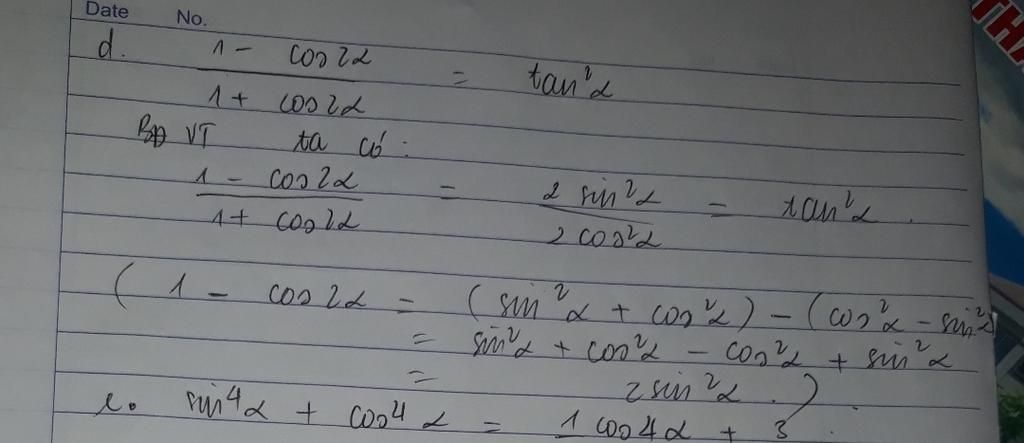 Date No.
d. (1 - cos2α)/(1 + cos2α) = tan²α
BĐ VT ta có:
(1 - cos2α)/(1 + cos2α) = (2 sin²α)/(2 cos²α) = tan²α.
( 1 - cos2α = (sin²α + cos²α) - (cos²α - sin²α)
= sin²α + cos²α - cos²α + sin²α
= 2 sin²α.)
e. sin⁴α + cos⁴α = 1 cos4α + 3